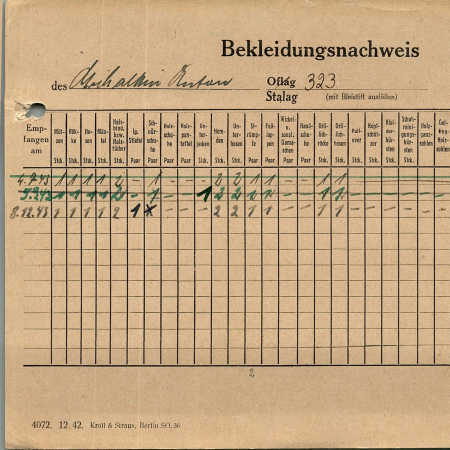 Bekleidungsnachweis
des Michalkin Anton Oflag 323
Stalag (mit Bleistift ausfüllen)
Emp-fangen am
Müt-zen Stk.
Rök-ke Stk.
Ho-sen Stk.
Män-tel Stk.
Hals-bind. bzw. Hals-tücher Stk.
lg. Stiefel Paar
Sch-nür-schu-he Paar
Holz-schu-he Paar
Holz-pan-toffel Paar
Un-ter-jacken Stk.
Hem-den Stk.
Un-ter-hosen Stk.
Strüm-pfe Paar
Fuß-lap-pen Paar
Wickel- u. sonst. Gama-schen Paar
Hand-schu-he Paar
Drill-röcke Stk.
Drill-hosen Stk.
Pull-over Stk.
Kopf-schüt-zer Stk.
Klei-der-bür-sten Stk.
Schuh-reini-gungs-bür-sten Stk.
Holz-ganz-sohlen Paar
4.9.43 1 1 1 1 2 - 1 - - - 2 2 1 1 - - 1 1 - - - - -
1 1 1 1 2 - 1 - - 1 2 2 1 1 - - 1 1 - - - - -
8.12.43 1 1 1 1 2 1 X - - - 2 2 1 1 - - 1 1 - - - - -
2
4072. 12. 42. Kroll & Straus, Berlin SO. 36